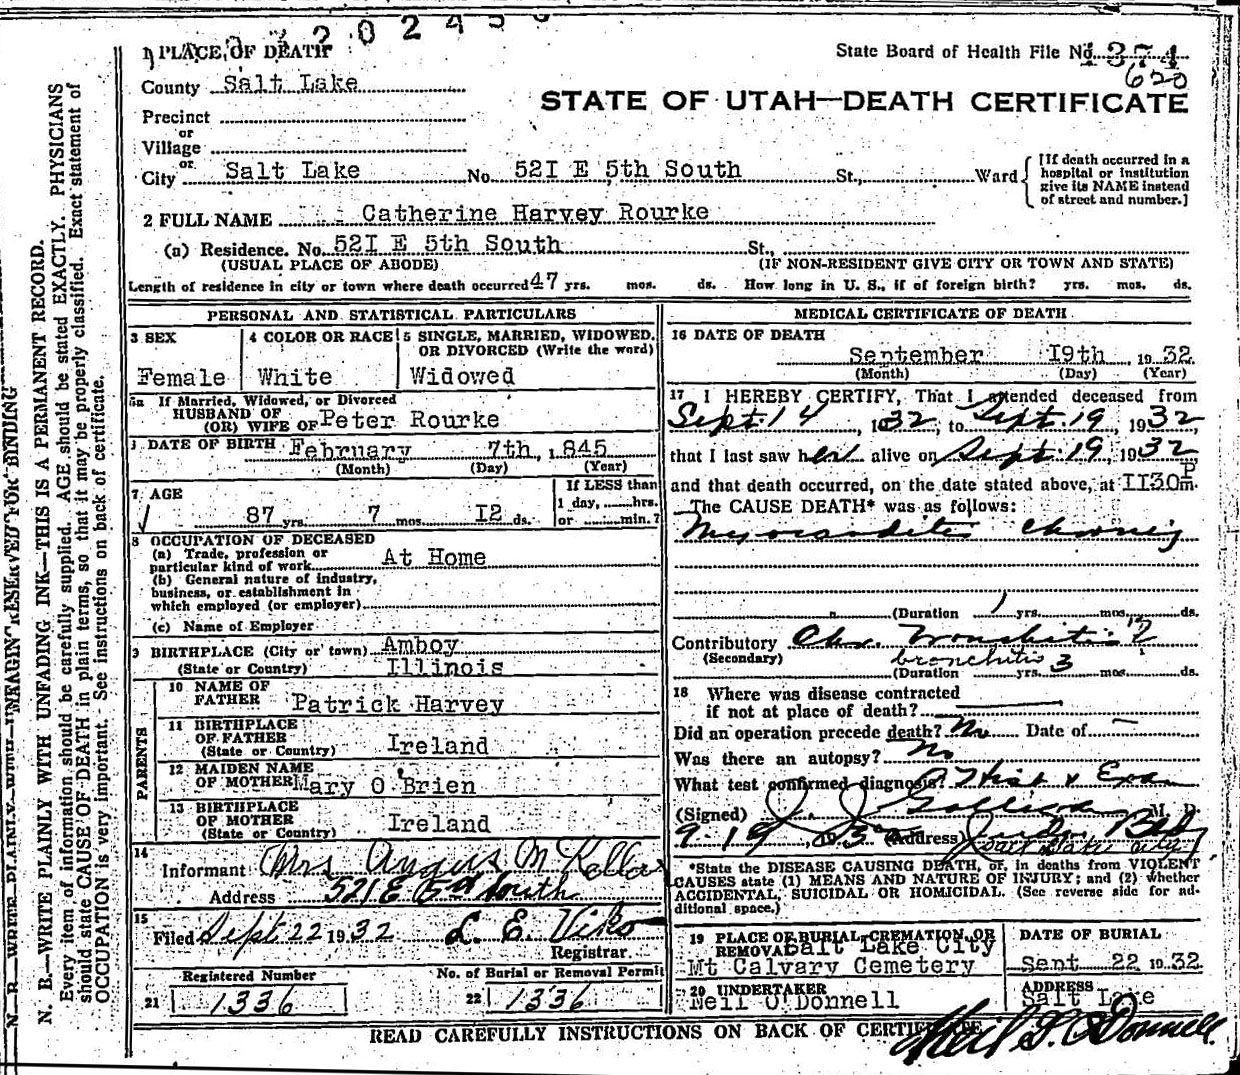 1 PLACE OF DEATH
State Board of Health File No. 1374
620
County Salt Lake
STATE OF UTAH—DEATH CERTIFICATE
Precinct
or
Village
or
City Salt Lake No. 52I E 5th South St., Ward
[If death occurred in a hospital or institution give its NAME instead of street and number.]
2 FULL NAME Catherine Harvey Rourke
(a) Residence. No. 52I E 5th South St.,
(USUAL PLACE OF ABODE) (IF NON-RESIDENT GIVE CITY OR TOWN AND STATE)
Length of residence in city or town where death occurred 47 yrs. mos. ds. How long in U. S., if of foreign birth? yrs. mos. ds.
PERSONAL AND STATISTICAL PARTICULARS
3 SEX
Female
4 COLOR OR RACE
White
5 SINGLE, MARRIED, WIDOWED, OR DIVORCED (Write the word)
Widowed
5a If Married, Widowed, or Divorced
HUSBAND OF
(OR) WIFE OF Peter Rourke
DATE OF BIRTH February 7th, 1845
(Month) (Day) (Year)
7 AGE
87 yrs. 7 mos. I2 ds.
If LESS than
1 day, hrs.
or min.?
8 OCCUPATION OF DECEASED
(a) Trade, profession or
particular kind of work At Home
(b) General nature of industry,
business, or establishment in
which employed (or employer)
(c) Name of Employer
9 BIRTHPLACE (City or town) Amboy
(State or Country) Illinois
PARENTS
10 NAME OF
FATHER Patrick Harvey
11 BIRTHPLACE
OF FATHER
(State or Country) Ireland
12 MAIDEN NAME
OF MOTHER Mary O'Brien
13 BIRTHPLACE
OF MOTHER
(State or Country) Ireland
14
Informant Mrs Angus M
Address 521 E 5th South
15
Filed Sept 22 1932 L. E. Viko
Registrar.
Registered Number
21 1336
No. of Burial or Removal Permit
22 1336
MEDICAL CERTIFICATE OF DEATH
16 DATE OF DEATH
September I9th 1932
(Month) (Day) (Year)
17 I HEREBY CERTIFY, That I attended deceased from
Sept. 14, 1932, to Sept. 19, 1932,
that I last saw her alive on Sept. 19, 1932
and that death occurred, on the date stated above, at II30 P m.
The CAUSE DEATH* was as follows:
Myocarditis chronic
(Duration 1 yrs. mos. ds.
Contributory Chr. Bronchitis ?
(Secondary) bronchitis
(Duration 3 yrs. mos. ds.
18 Where was disease contracted
if not at place of death?
Did an operation precede death? No Date of
Was there an autopsy? No
What test confirmed diagnosis? Hist & Exam
(Signed) J. J. Galligan M. D.
9-19, 1932 (Address)
*State the DISEASE CAUSING DEATH, or, in deaths from VIOLENT
CAUSES state (1) MEANS AND NATURE OF INJURY; and (2) whether
ACCIDENTAL, SUICIDAL OR HOMICIDAL. (See reverse side for additional space.)
19 PLACE OF BURIAL, CREMATION, OR
REMOVAL Salt Lake City
Mt Calvary Cemetery
DATE OF BURIAL
Sept 22 1932
20 UNDERTAKER
Neil O'Donnell
ADDRESS
Salt Lake
READ CAREFULLY INSTRUCTIONS ON BACK OF CERTIFICATE
Neil O'Donnell
N. B.—WRITE PLAINLY WITH UNFADING INK—THIS IS A PERMANENT RECORD.
Every item of information should be carefully supplied. AGE should be stated EXACTLY. PHYSICIANS
should state CAUSE OF DEATH in plain terms, so that it may be properly classified. Exact statement of
OCCUPATION is very important. See instructions on back of certificate.